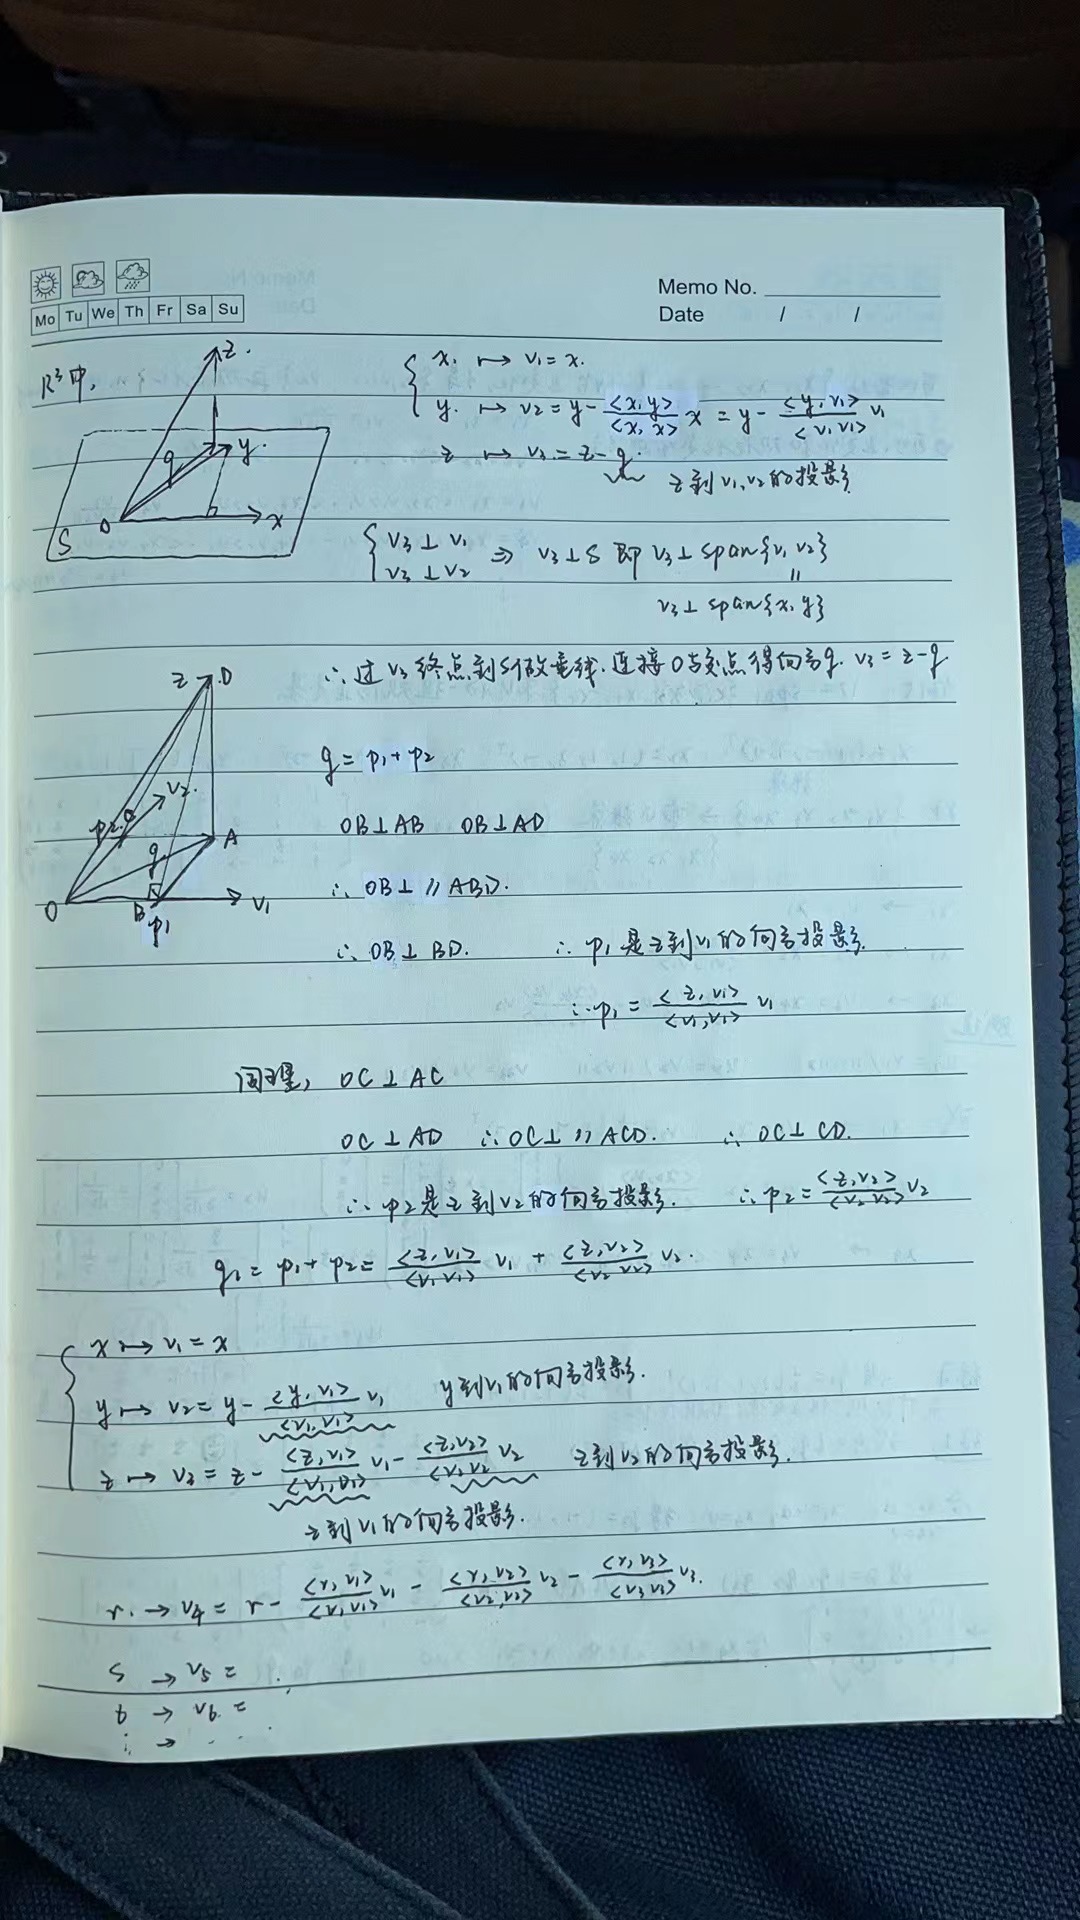 Memo No.
Mo Tu We Th Fr Sa Su
Date / /
R³中,
z.
y.
q
O
x
S
x. ↦ v₁ = x.
y. ↦ v₂ = y - <x,y>/<x,x> x = y - <y,v₁>/<v₁,v₁> v₁
z ↦ v₃ = z - q.
z到v₁,v₂的投影
{v₃⊥v₁
v₃⊥v₂ ⇒ v₃⊥S 即 v₃⊥span{v₁,v₂}
=
v₃⊥span{x,y}
∴过v₃终点到S做垂线.连接O与交点得向量q. v₃ = z - q
z D
v₂.
p₂ C
A
q
O
B
v₁
p₁
q = p₁ + p₂
OB⊥AB OB⊥AD
∴ OB⊥〃ABD.
∴ OB⊥BD. ∴ p₁是z到v₁的向量投影.
∴ p₁ = <z,v₁>/<v₁,v₁> v₁
同理, OC⊥AC
OC⊥AD ∴OC⊥〃ACD. ∴ OC⊥CD.
∴ p₂是z到v₂的向量投影. ∴p₂ = <z,v₂>/<v₂ v₂> v₂
= p₁ + p₂ = <z,v₁>/<v₁ v₁> v₁ + <z,v₂>/<v₂ v₂> v₂.
x ↦ v₁ = x
y ↦ v₂ = y - <y,v₁>/<v₁,v₁> v₁ y到v₁的向量投影.
z ↦ v₃ = z - <z,v₁>/<v₁,v₁> v₁ - <z,v₂>/<v₂ v₂ v₂ z到v₂的向量投影.
z到v₁的向量投影.
r. → v₄ = r - <r,v₁>/<v₁ v₁> v₁ - <r,v₂>/<v₂,v₂> v₂ - <r,v₃>/<v₃ v₃> v₃.
S → v₅ =
t → v₆. =
⋮ → . .